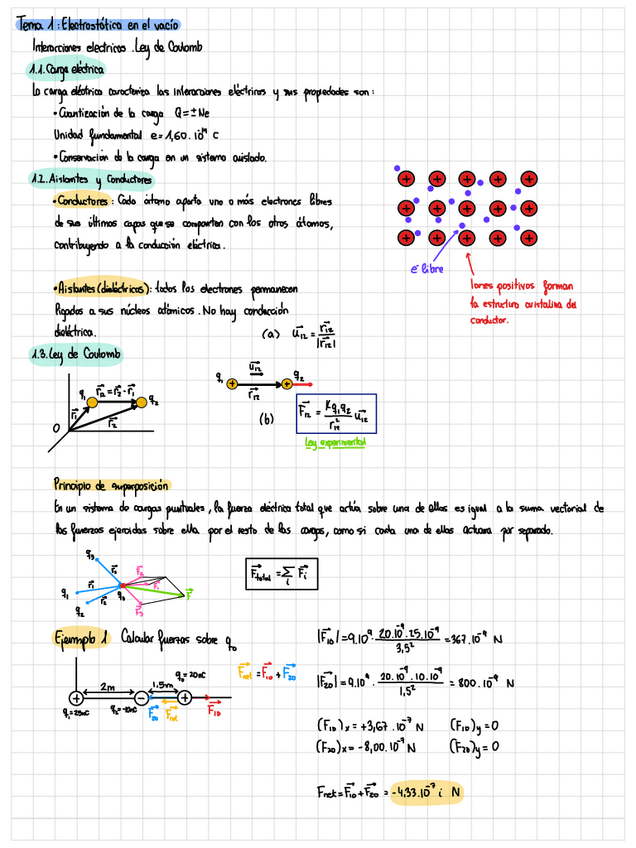 Tema 1: Electrostática en el vacío
Interacciones electricas. Ley de Coulomb
1.1. Carga eléctrica
La carga eléctrica caracteriza las interacciones eléctricas y sus propiedades son:
• Cuantización de la carga Q = ± Ne
Unidad fundamental e = 1,60 · 10⁻¹⁹ C
• Conservación de la carga en un sistema aislado.
1.2. Aislantes y Conductores
• Conductores: Cada átomo aporta uno o más electrones libres
de sus últimas capas que se comparten con los otros átomos,
contribuyendo a la conducción eléctrica.
e⁻ libre
Iones positivos forman
la estructura cristalina del
conductor.
• Aislantes (dieléctricos): todos los electrones permanecen
ligados a sus núcleos atómicos. No hay conducción
dieléctrica.
(a) u₁₂ = r₁₂ / |r₁₂|
1.3. Ley de Coulomb
q₁ r₁₂ = r₂ - r₁ q₂
r₁ r₂
O
q₁ u₁₂ q₂
r₁₂
(b) F₁₂ = K q₁ q₂ / r₁₂² u₁₂
Ley experimental
Principio de superposición
En un sistema de cargas puntuales, la fuerza eléctrica total que actúa sobre una de ellas es igual a la suma vectorial de
las fuerzas ejercidas sobre ella por el resto de las cargas, como si cada una de ellas actuara por separado.
q₃ r₃
q₁ r₁ q₀ F
q₂ r₂ F₃
F total = Σ i Fi
Ejemplo 1 Calcular fuerzas sobre q₀
2m 1,5m q₀ = 20nC
q₁ = 25nC q₂ = -10nC F₂₀ Fnet F₁₀
Fnet = F₁₀ + F₂₀
|F₁₀| = 9·10⁹ · 20·10⁻⁹ · 25·10⁻⁹ / 3,5² = 367·10⁻⁹ N
|F₂₀| = 9·10⁹ · 20·10⁻⁹ · 10·10⁻⁹ / 1,5² = 800·10⁻⁹ N
(F₁₀)x = +3,67·10⁻⁷ N (F₁₀)y = 0
(F₂₀)x = -8,00·10⁻⁷ N (F₂₀)y = 0
Fnet = F₁₀ + F₂₀ = -4,33·10⁻⁷ i N